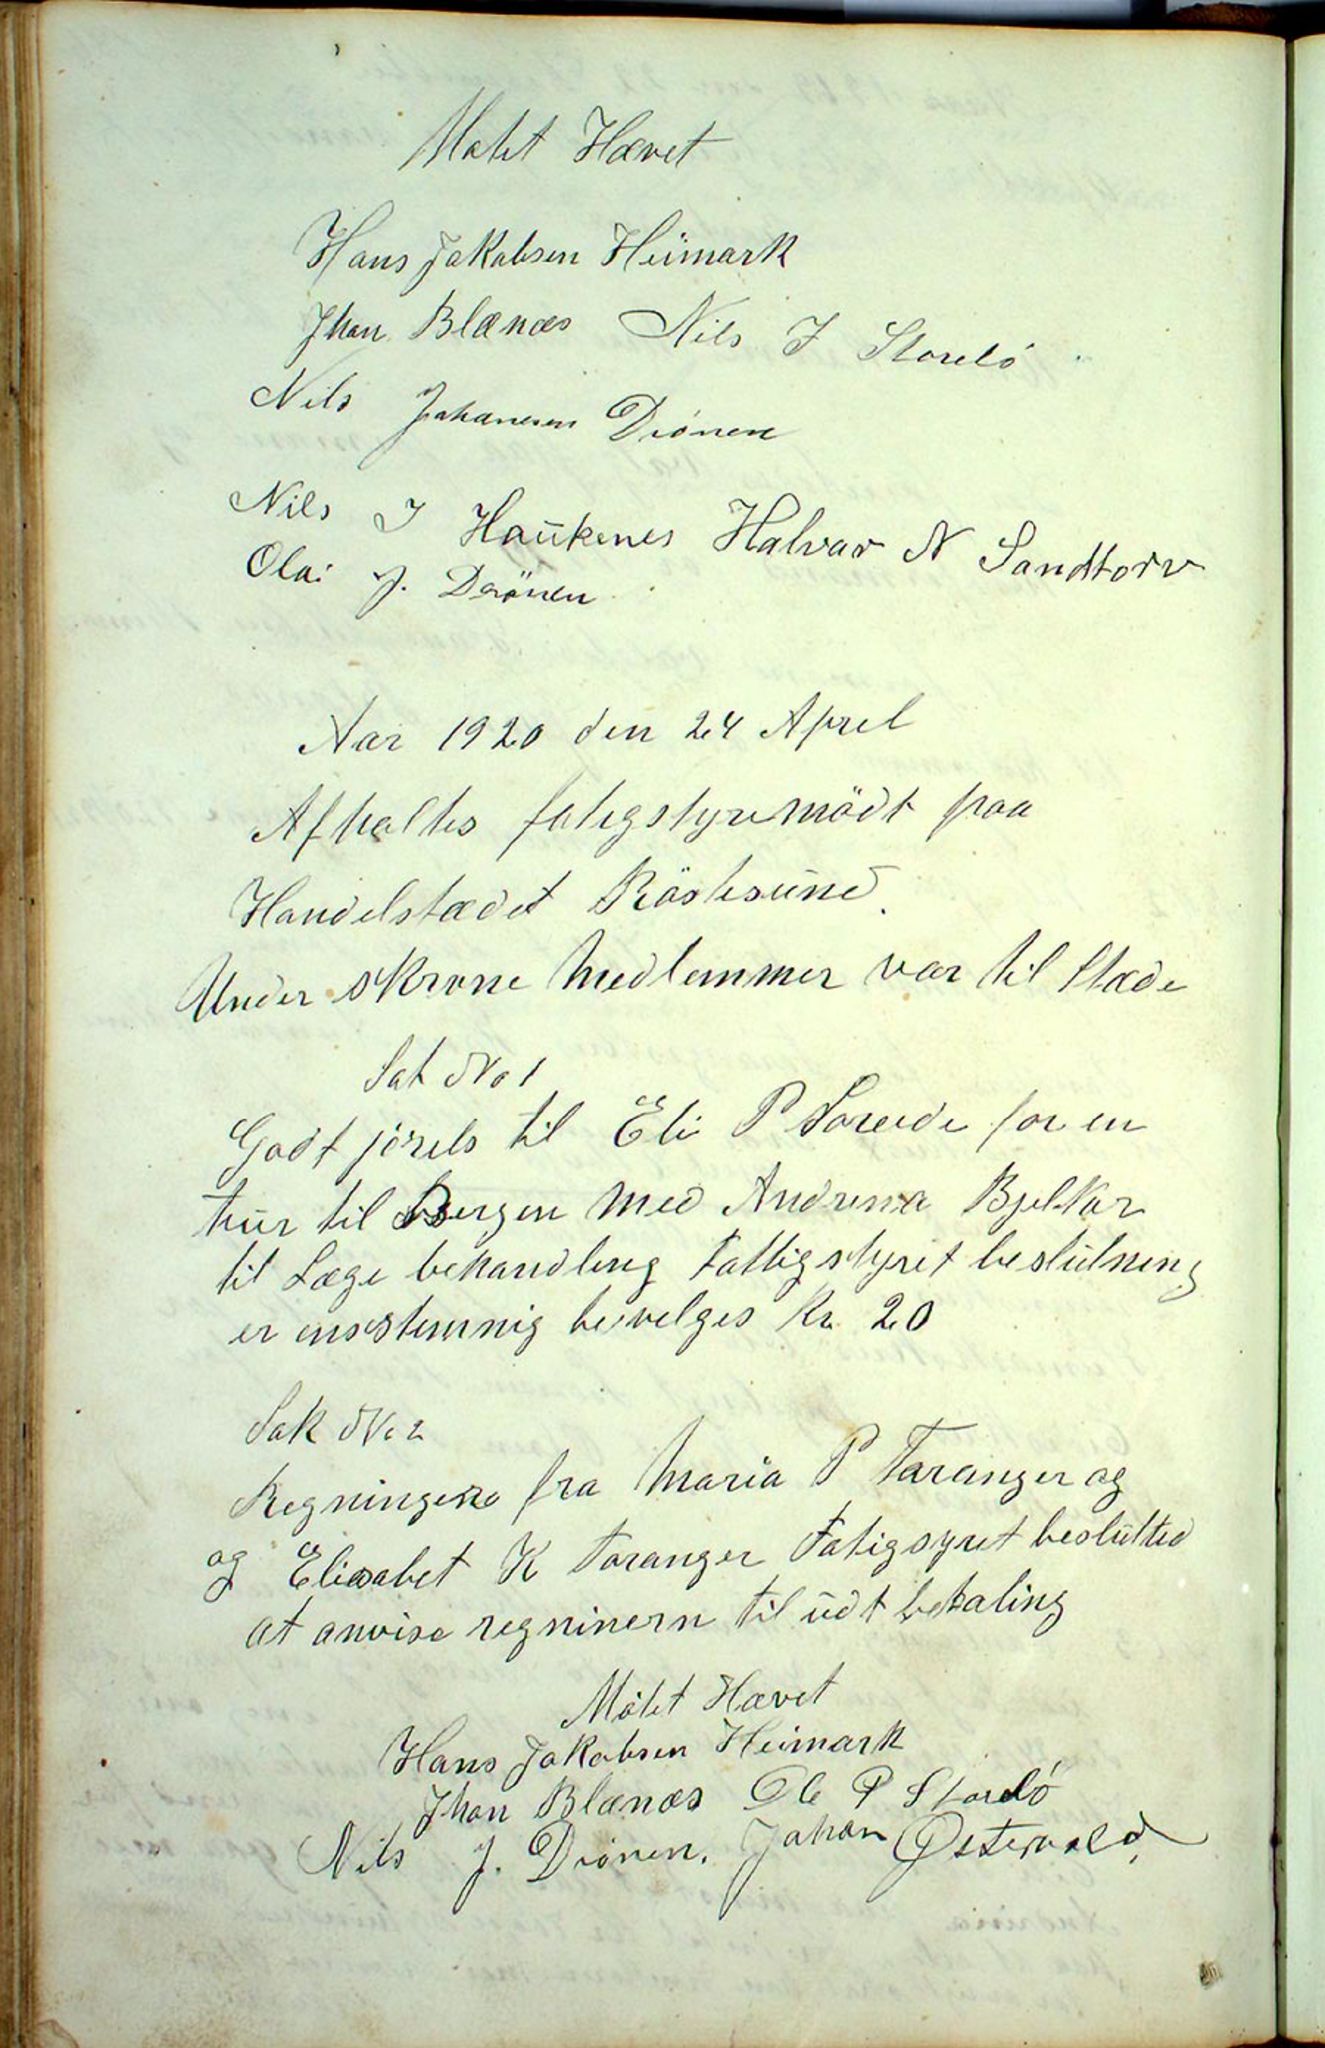 Møtet Hævet
Hans Jakobsen Heimark
Jhon Blænæs Nils J Storelö
Nils Johanesen Drönen
Nils J Haukenes Halvar N Sandtorv
Olai J. Drönen
Aar 1920 den 24 Aprel
Afholtes fatigstyremödt paa
Handelstædet Röstesund.
Under skrevne Medlemmer var til stæde
Sak No 1
Godt jörels til Eli P Soreide for en
tur til Bergen med Andrina Bjelkar
til Læge behandling Fattigstyret beslutning
er ensstemnig bevelges Kr 20
Sak No 2
Regningene fra Maria P Taranger og
og Elisabet K Taranger Fatigsyret beslutted
at anvise regninern til udt betaling
Mötet Hævet
Hans Jakobsen Heimark
Jhon Blænæs Ole P Storelö
Nils J. Drönen. Johan Østervold.